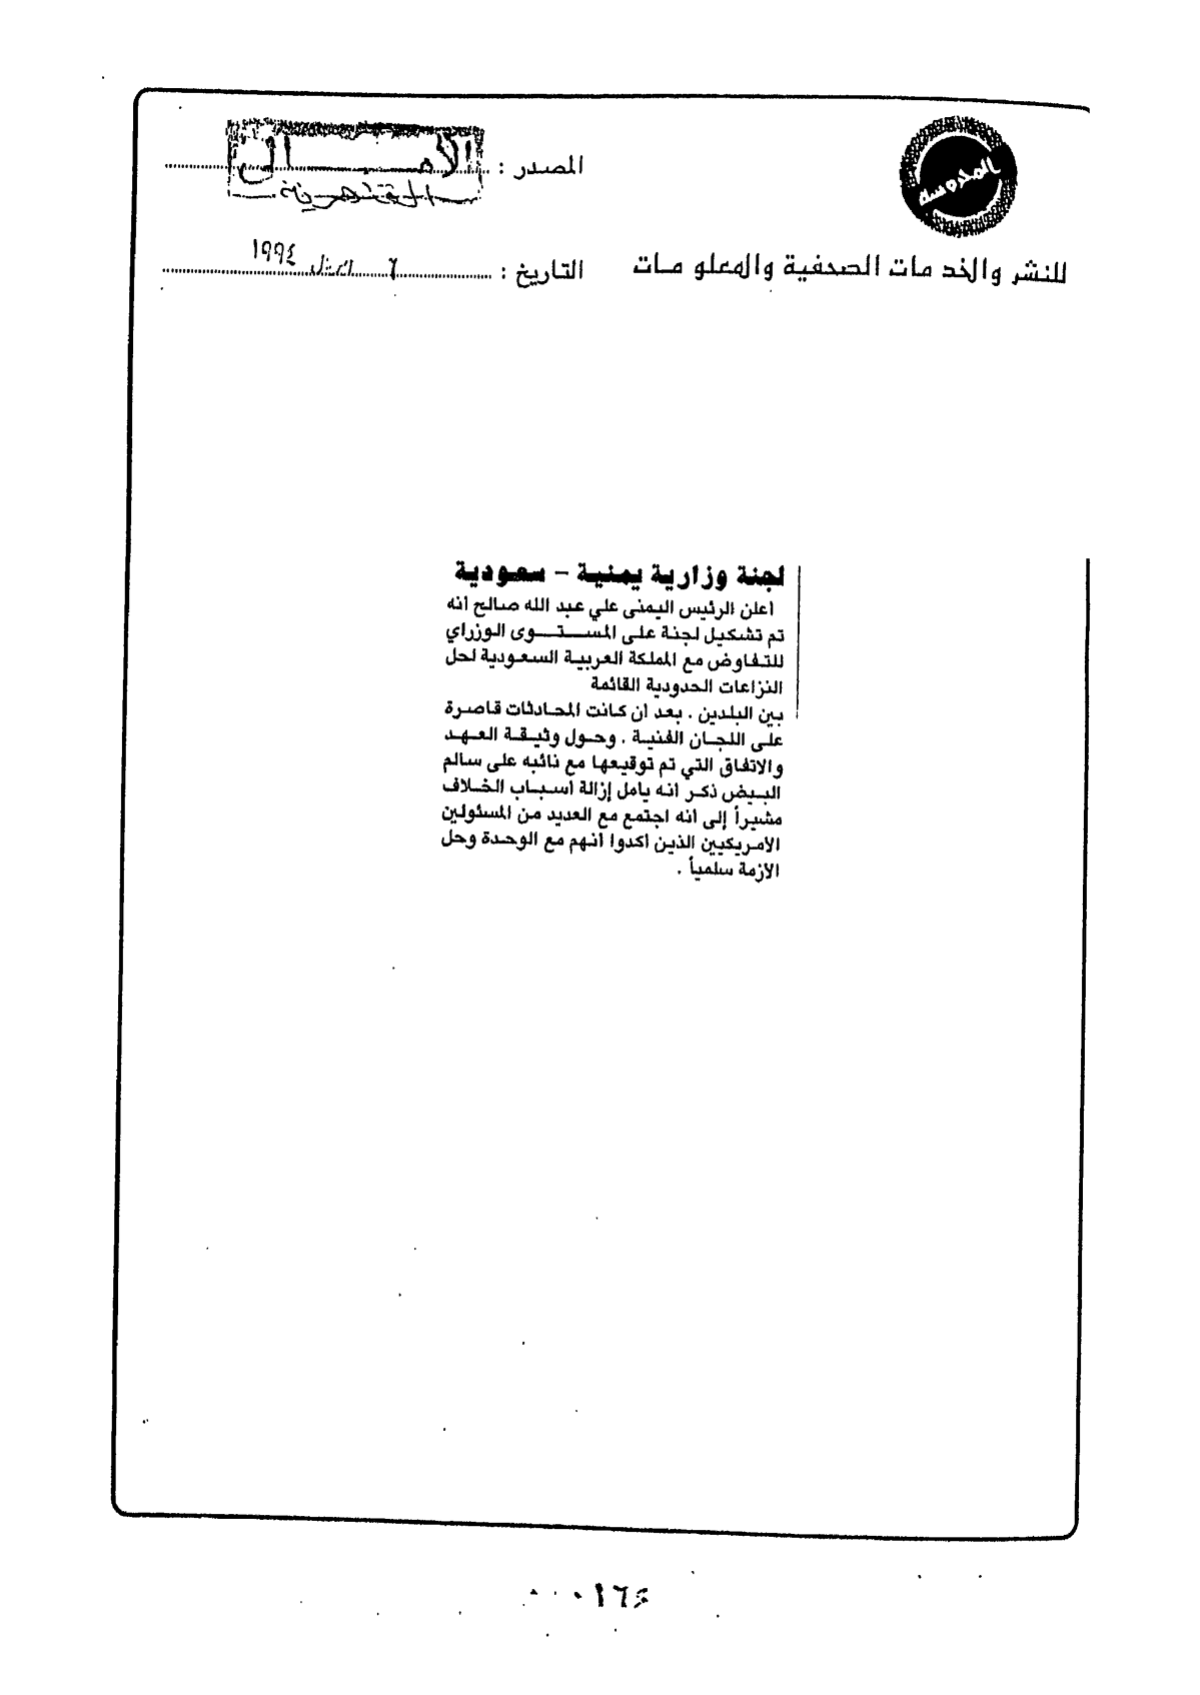 المحروسة
المصدر :
للنشر والخد مات الصحفية والمعلو مات
التاريخ : ٦ ابريل ١٩٩٤
لجنة وزارية يمنية - سعودية
أعلن الرئيس اليمنى علي عبد الله صالح أنه
تم تشكيل لجنة على المستوى الوزراي
للتفاوض مع المملكة العربية السعودية لحل
النزاعات الحدودية القائمة
بين البلدين . بعد أن كانت المحادثات قاصرة
على اللجان الفنية . وحول وثيقة العهد
والاتفاق التي تم توقيعها مع نائبه على سالم
البيض ذكر أنه يامل إزالة أسباب الخلاف
مشيراً إلى أنه اجتمع مع العديد من المسئولين
الامريكيين الذين أكدوا أنهم مع الوحدة وحل
الازمة سلمياً .